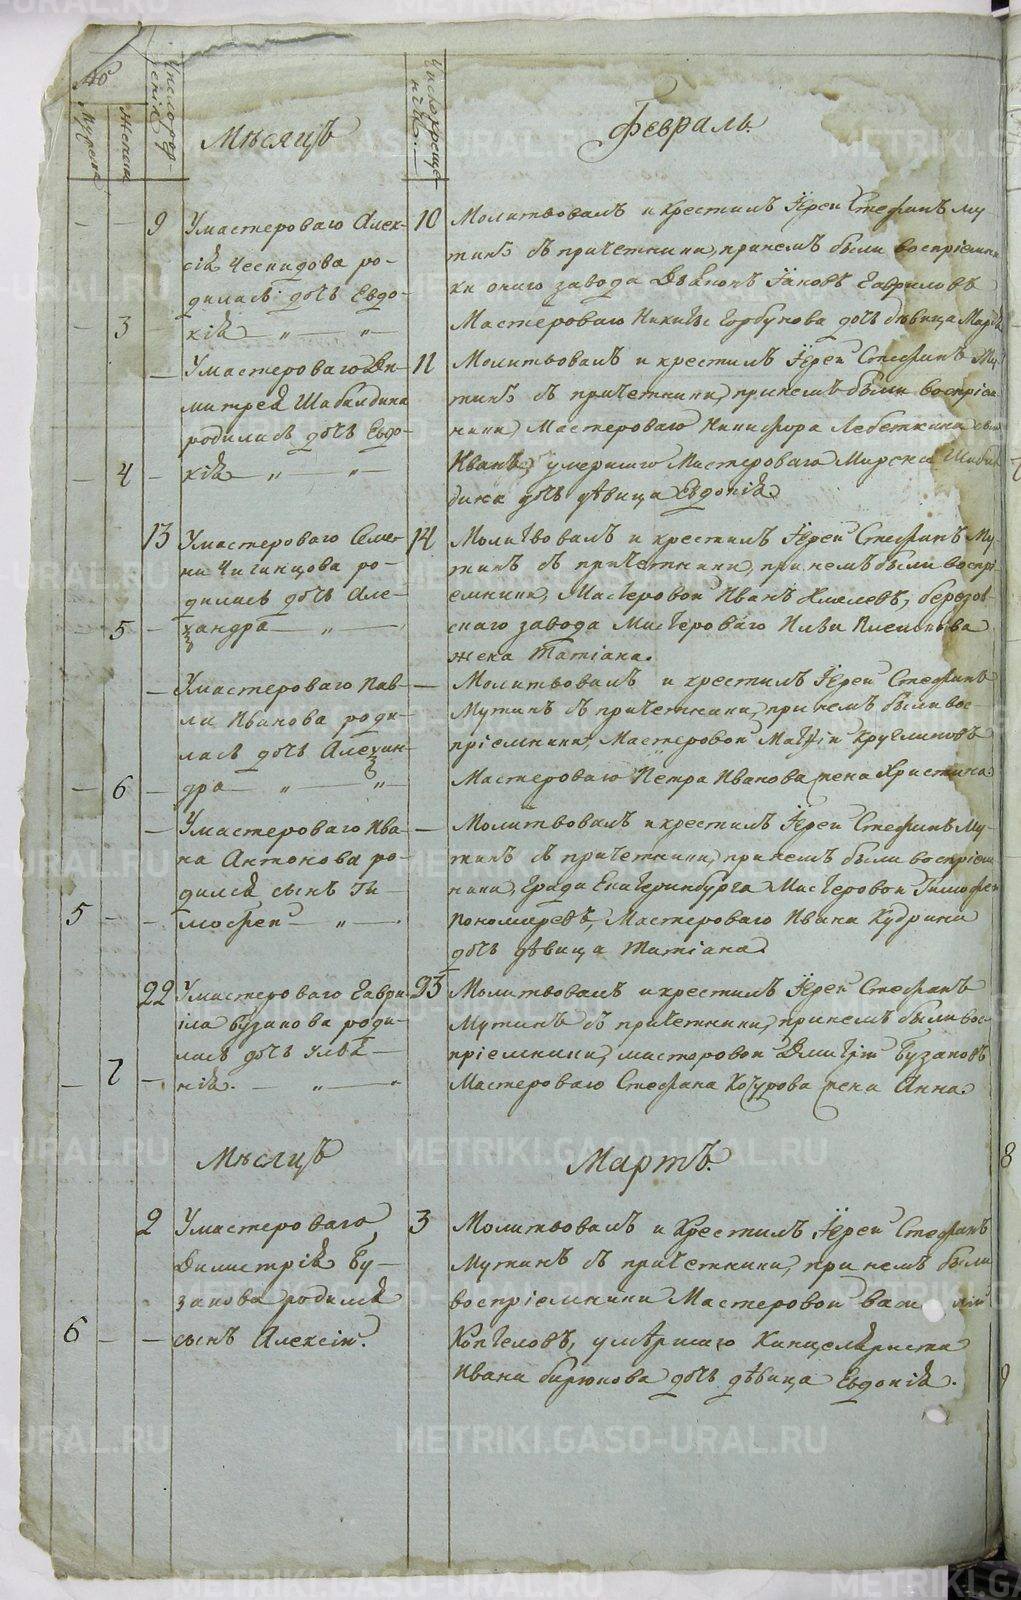 №
Мужеска
Женска
Число рождения
Число крещения
Мѣсяцъ
Февраль.
9
Умастероваго Алек-
сѣя Чеснидова ро-
дилась дочь Евдо-
3
кія
10
Молитвовалъ и крестилъ Іерей Стефанъ Му
тинъ съ причетники, принемъ были воспріемни
ки онаго завода Дьяконъ Іаковъ Гавриловъ
Мастероваго Никиты Горбунова дочь дѣвица Марѳа
Умастероваго Ди-
митрея Шабалдина
родилась дочь Евдо-
4
кія
11
Молитвовалъ и крестилъ Іерей Стефанъ Му
тинъ съ причетники, принемъ были воспріем
ники, Мастероваго Никифора Лебеткина сынъ
Иванъ, умершаго Мастероваго Мирона Шабал
дина дочь дѣвица Евдокія
13
Умастероваго Семе-
на Чигинцова ро-
дилась дочь Але-
5
ѯандра
14
Молитвовалъ и крестилъ Іерей Стефанъ Му-
тинъ съ причетники, принемъ были воспрі-
емники, Мастеровой Иванъ березов-
скаго завода Мастероваго Ильи
жена Татіана.
Умастероваго Пав-
ла Иванова роди-
лась дочь Алеѯан-
6
дра
Молитвовалъ и крестилъ Іерей Стефанъ
Мутинъ съ причетники, принемъ были вос-
пріемники, Мастеровой Матѳій Кругликовъ
Мастероваго Петра Иванова жена Христина.
Умастероваго Ива-
на Антонова ро-
дился сынъ Ти-
5
мофей
Молитвовалъ и крестилъ Іерей Стефанъ Му-
тинъ съ причетники, принемъ были воспріем
ники, града Екатеринбурга Мастеровой Тимофей
Пономаревъ, Мастероваго Ивана Кудрина
дочь дѣвица Татіана.
22
Умастероваго Гаври-
ла Бузанова роди-
лась дочь Улья-
7
нія.
23
Молитвовалъ и крестилъ Іерей Стефанъ
Мутинъ съ причетники, принемъ были вос-
пріемники, мастеровой Дмитріи Бузановъ
Мастероваго Стефана Кочурова жена Анна.
Мѣсяцъ
Мартъ.
2
Умастероваго
Димитрія Бу-
занова родился
6
сынъ Алексіи.
3
Молитвовалъ и Крестилъ Іерей Стефанъ
Мутинъ съ причетники, принемъ были
воспріемники Мастеровой
Коптеловъ, умѣршаго Канцеляриста
Ивана бирюкова дочь дѣвица Евдокія.
METRIKI.GASO-URAL.RU